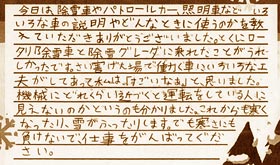 今日は、除雪車やパトロールカー、照明車などいろ
いろな車の説明やどんなときに使うのかを教
えていただきありがとうございました。とくにロー
タリ除雪車と除雪グレーダに乗れたことがうれ
しかったです。さい害げん場で働く車にはいろいろな工
夫がしてあって私は、「すごいなあ」と、思いました。
機械にどれくらい近づくと運転をしている人に
見えないのかというのも分かりました。これからも寒く
なったり、雪がふったりします。でも寒さにも
負けないで、仕事をがんばってくだ
さい。